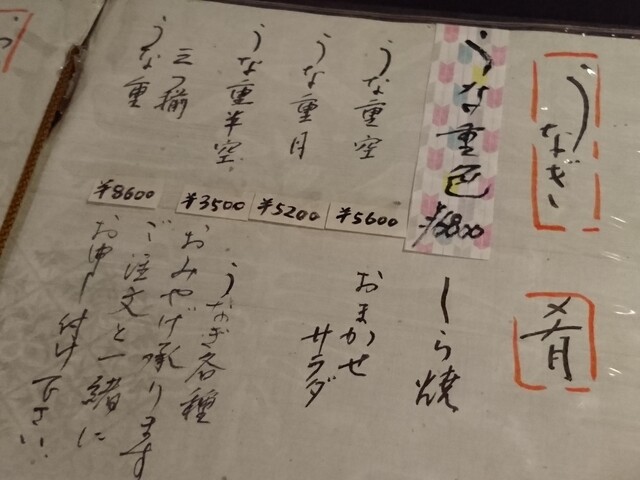 うなぎ
うな重色
¥6800
うな重空
¥5600
うな重月
¥5200
うな重半空
¥3500
三つ揃
うな重
¥8600
肴
しら焼
おまかせ
サラダ
うなぎ各種
おみやげ承ります
ご注文と一緒に
お申し付け下さい